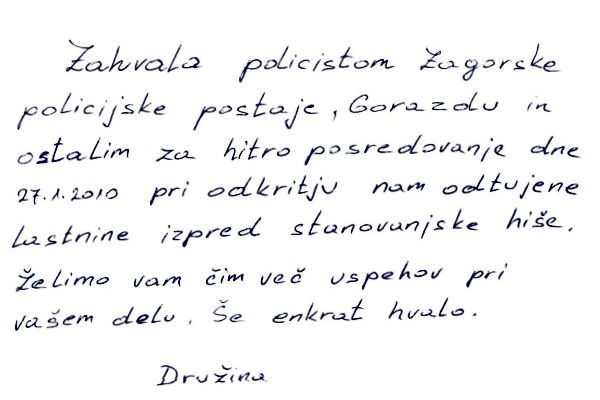 Zahvala policistom Zagorske
policijske postaje, Gorazdu in
ostalim za hitro posredovanje dne
27.1.2010 pri odkritju nam odtujene
lastnine izpred stanovanjske hiše.
Želimo vam čim več uspehov pri
vašem delu. Še enkrat hvala.
Družina